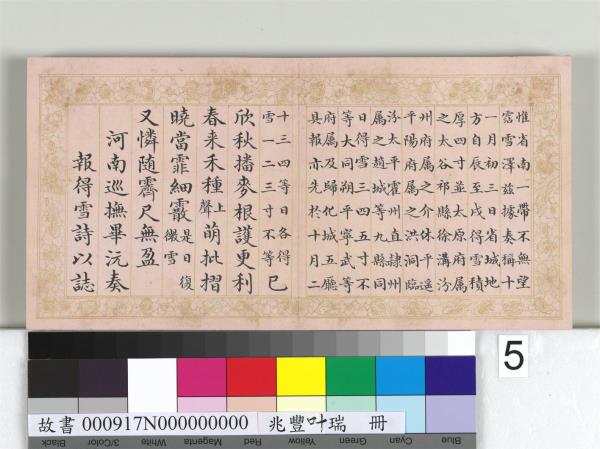 惟省南一帶不無望
雲雪澤茲據奏稱十
一月初三日省城地
方自辰至戌得雪積
厚四寸並太原府屬
之太谷祁縣徐溝汾
州府屬之介休平遙
平陽府屬之洪洞臨
汾太平霍州直隸州
屬之趙城等九縣同
日得雪三四五寸不
等大同朔平寧武等
府屬及歸化城五廳
具報亦先於十月二
十三四等日各得
雪一二三寸不等
已
欣秋播麥根護更利
春来禾種上聲萌批摺
曉當霏細霰是日復微雪
又憐随霽尺無盈
河南巡撫畢沅奏
報得雪詩以誌
5
故書 000917N000000000 兆豐叶瑞 冊
Black 3/Color White Magenta Red Yellow Green Cyan Blue